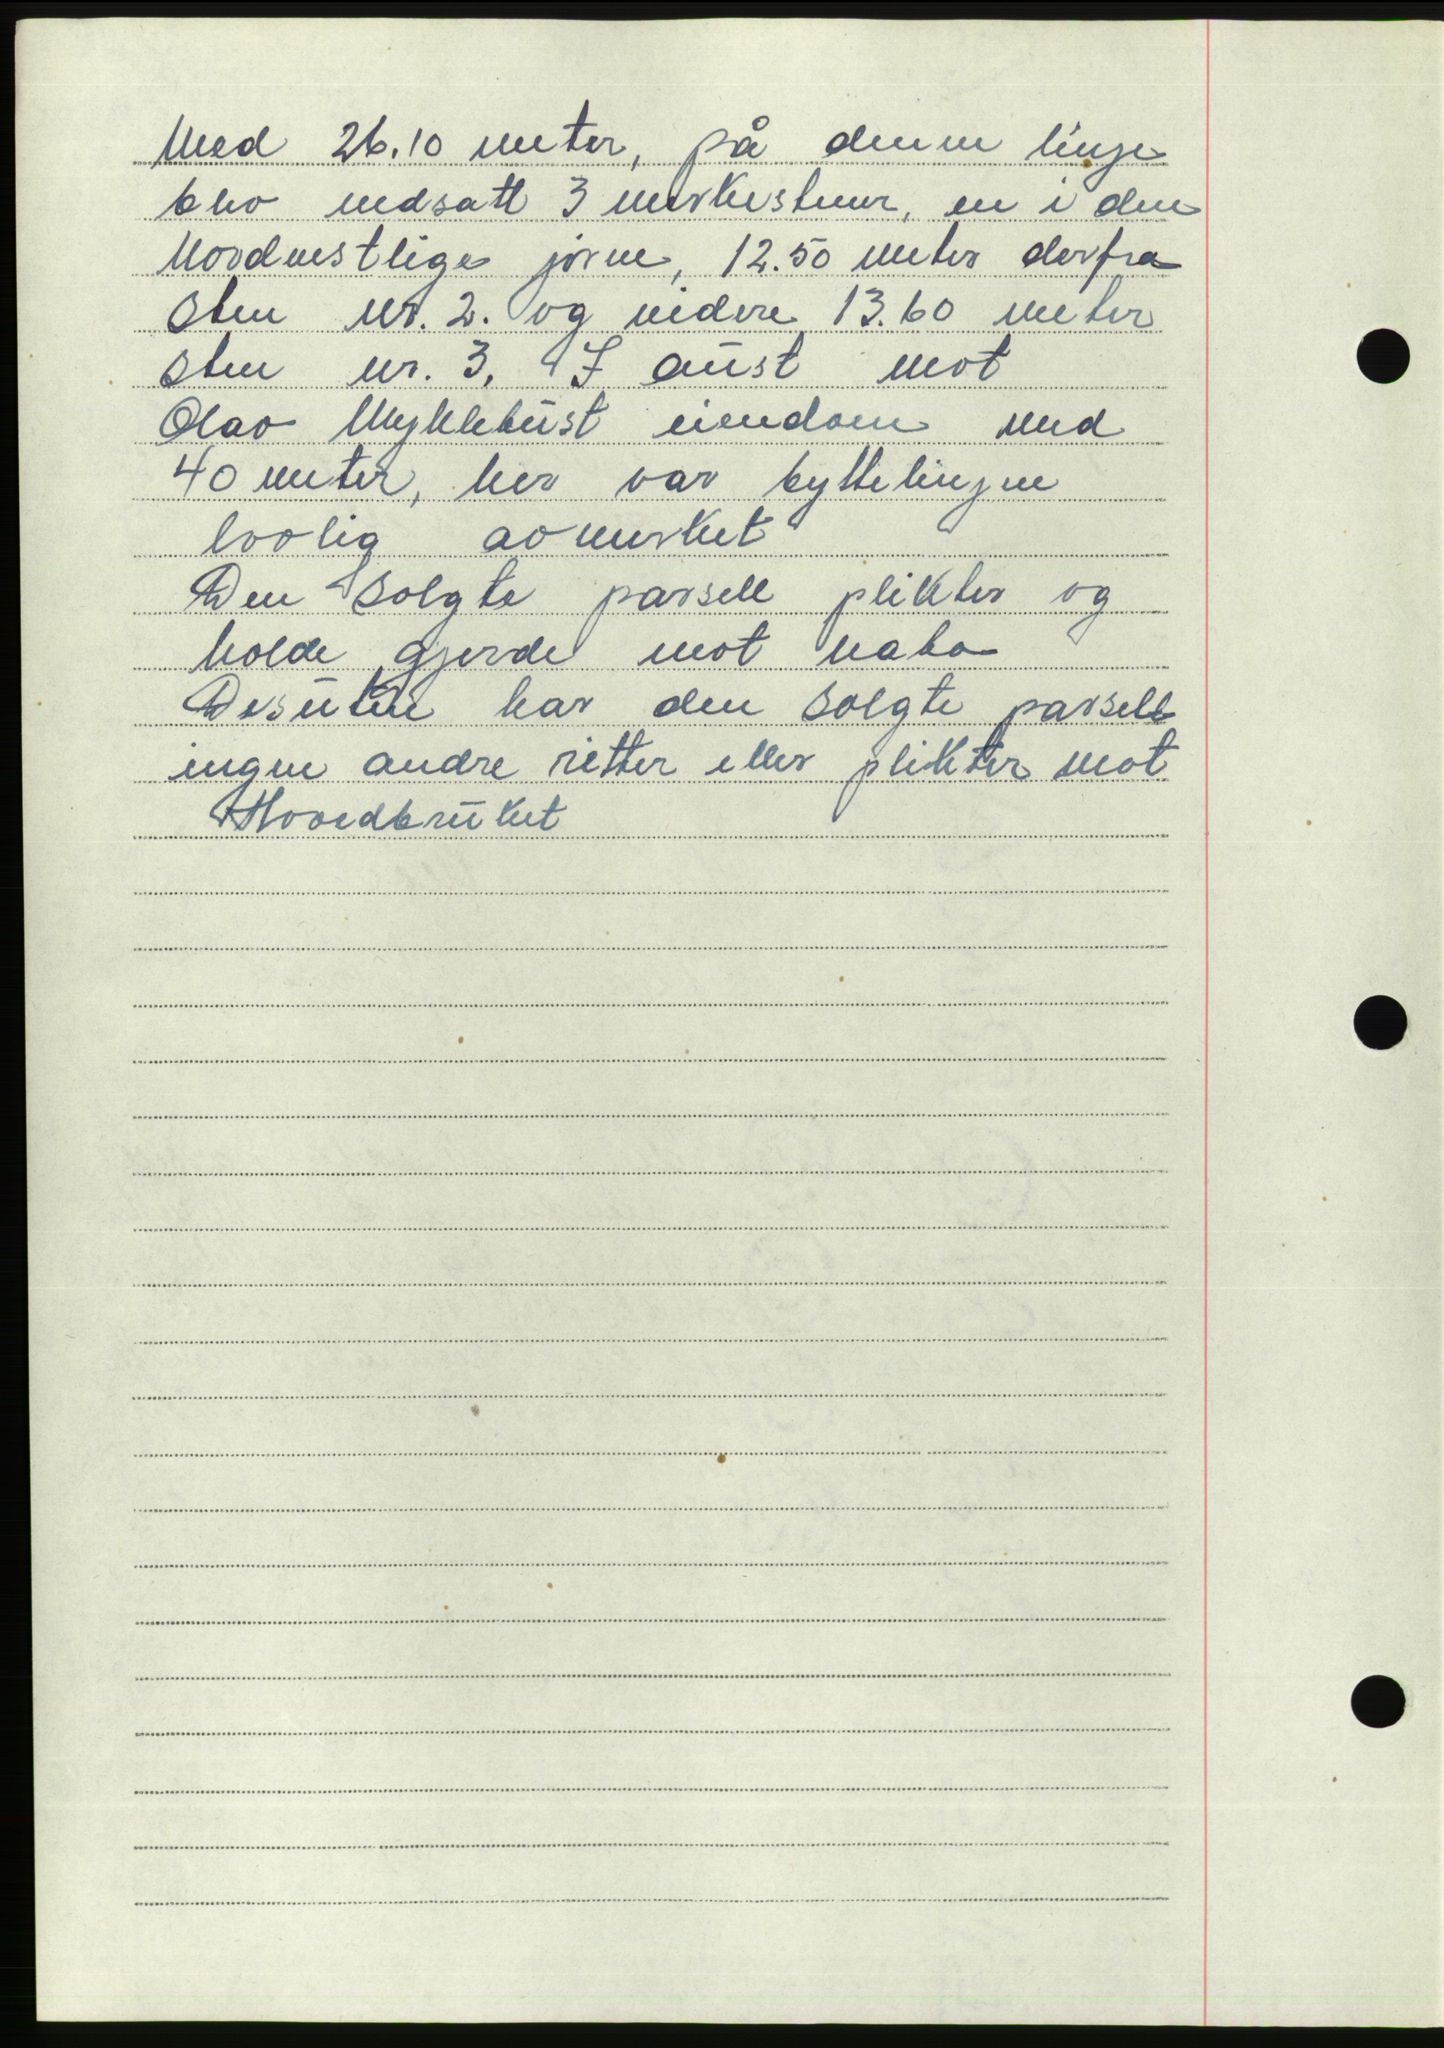 Med 26.10 meter, på denne linje
blev nedsatt 3 merkestener, en i den
Nordvestlige jörne, 12.50 meter derfra
Sten nr. 2. og videre 13.60 meter
Sten nr. 3. I aust mot
Olav Myklebust eiendom med
40 meter, her var byttelinjen
lovlig avmerket
Den solgte parsell plikter og
holde gjerde mot nabo
Desuten har den solgte parsell
ingen andre retter eller plikter mot
Hovedbruket